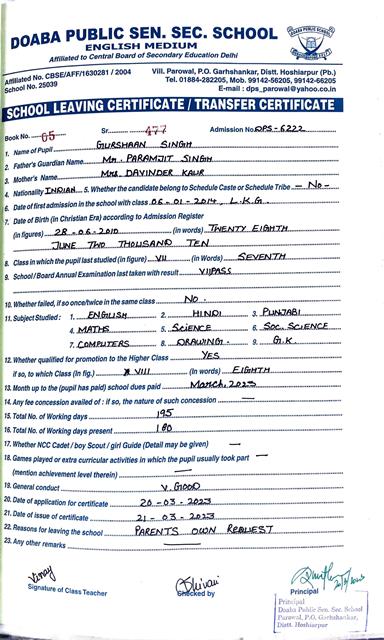 DOABA PUBLIC SEN. SEC. SCHOOL
ENGLISH MEDIUM
Affiliated to Central Board of Secondary Education Delhi
Affiliated No. CBSE/AFF/1630281 / 2004
School No. 25039
Vill. Parowal, P.O. Garhshankar, Distt. Hoshiarpur (Pb.)
Tel. 01884-282205, Mob. 99142-56205, 99142-66205
E-mail : dps_parowal@yahoo.co.in
SCHOOL LEAVING CERTIFICATE / TRANSFER CERTIFICATE
Book No. 05 Sr. 477 Admission No. DPS-6222
1. Name of Pupil GURSHAAN SINGH
2. Father's Guardian Name Mr. PARAMJIT SINGH
3. Mother's Name Mrs. DAVINDER KAUR
4. Nationality INDIAN 5. Whether the candidate belong to Schedule Caste or Schedule Tribe - No -
6. Date of first admission in the school with class 06-01-2014, L.K.G.
7. Date of Birth (in Christian Era) according to Admission Register
(in figures) 28-06-2010 (in words) TWENTY EIGHTH
JUNE TWO THOUSAND TEN
8. Class in which the pupil last studied (in figure) VII (in Words) SEVENTH
9. School / Board Annual Examination last taken with result VII PASS
10. Whether failed, if so once/twice in the same class NO.
11. Subject Studied : 1. ENGLISH 2. HINDI 3. PUNJABI
4. MATHS 5. SCIENCE 6. SOC. SCIENCE
7. COMPUTERS 8. DRAWING. 9. G.K.
12. Whether qualified for promotion to the Higher Class YES
if so, to which Class (in fig.) VIII (in Words) EIGHTH
13. Month up to the (pupil has paid) school dues paid March, 2023
14. Any fee concession availed of : if so, the nature of such concession —
15. Total No. of Working days 195
16. Total No. of Working days present 180
17. Whether NCC Cadet / boy Scout / girl Guide (Detail may be given) —
18. Games played or extra curricular activities in which the pupil usually took part —
(mention achievement level therein) —
19. General conduct V. GOOD
20. Date of application for certificate 20-03-2023
21. Date of issue of certificate 21-03-2023
22. Reasons for leaving the school PARENTS OWN REQUEST
23. Any other remarks —
Signature of Class Teacher
Checked by
Principal
Principal
Doaba Public Sen. Sec. School
Parowal, P.O. Garhshankar,
Distt. Hoshiarpur